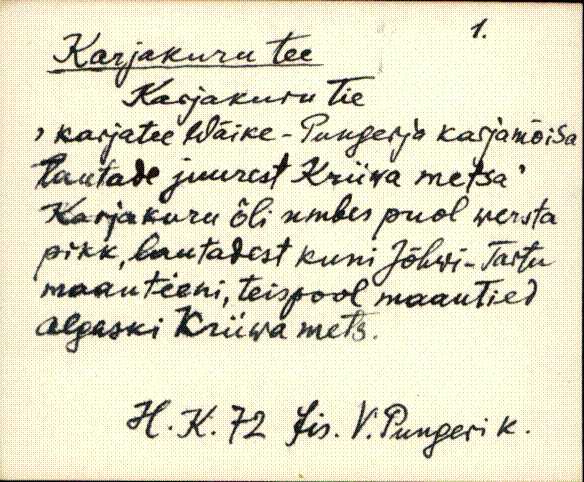 1.
Karjakuru tee
Karjakuru tie
, karjatee Wäike-Pungerja karjamõisa
lautade juurest Kriiwa metsa'
Karjakuru õli umbes puol wersta
pikk, lautadest kuni Jõhwi-Tartu
maantieni, teispool maantied
algaski Kriiwa mets.
H. K. 72 Iis. V. Pungerik.